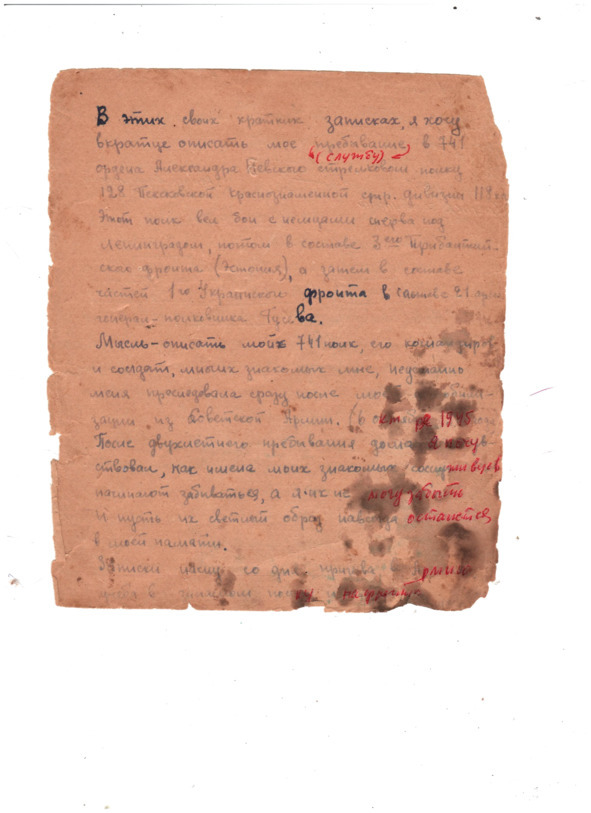 В этих своих кратких записках, я хочу
вкратце описать мое пребывание, в 741
(службу)
ордена Александра Невского стрелковом полку
128 Псковской краснознаменной стр. дивизии 118
Этот полк вел бои с немцами сперва под
Ленинградом, потом в составе 3его Прибалтий-
ского фронта (Эстония), а затем в составе
частей 1го Украинского фронта в составе 21 армии
генерал-полковника Гусева.
Мысль-описать мой 741 полк, его командиров
и солдат, многих знакомых мне, неустанно
меня преследовала сразу после моей
зации из Советской Армии. (в октябре 1945
После двухлетнего пребывания дома я почув
ствовал, как имена моих знакомых сослуживцев
начинают забываться, а я их не могу забыть
И пусть их светлый образ навсегда останется
в моей памяти.
Записки пишу со дня призыва Армию
на фронт